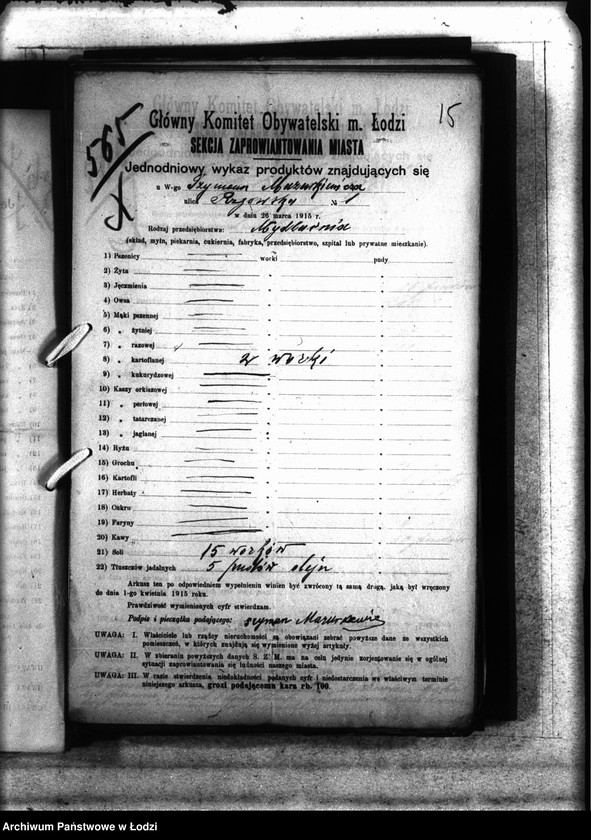 565
15
Główny Komitet Obywatelski m. Łodzi
SEKCJA ZAPROWIANTOWANIA MIASTA
Jednodniowy wykaz produktów znajdujących się
u W-go Szymona Mazurkiewicza
ulica Rzgowska № 1
w dniu 26 marca 1915 r.
Rodzaj przedsiębiorstwa: Mydlarnia
(skład, młyn, piekarnia, cukiernia, fabryka, przedsiębiorstwo, szpital lub prywatne mieszkanie).
1) Pszenicy worki pudy
2) Żyta " "
3) Jęczmienia " "
4) Owsa " "
5) Mąki pszennej " "
6) " żytniej " "
7) " razowej " "
8) " kartoflanej 2 worki "
9) " kukurydzowej " "
10) Kaszy orkiszowej " "
11) " perłowej " "
12) " tatarczanej " "
13) " jaglanej " "
14) Ryżu " "
15) Grochu " "
16) Kartofli " "
17) Herbaty " "
18) Cukru " "
19) Faryny " "
20) Kawy " "
21) Soli 15 worków
22) Tłuszczów jadalnych 5 pudów oleju
Arkusz ten po odpowiedniem wypełnieniu winien być zwrócony tą samą drogą, jaką był wręczony
do dnia 1-go kwietnia 1915 roku.
Prawdziwość wymienionych cyfr stwierdzam.
Podpis i pieczątka podającego: Szymon Mazurkiewicz
UWAGA: I. Właściciele lub rządcy nieruchomości są obowiązani zebrać powyższe dane ze wszystkich
pomieszczeń, w których znajdują się wymienione wyżej artykuły.
UWAGA: II. W zbieraniu powyższych danych S. Z. M. ma na celu jedynie zorjentowanie się w ogólnej
sytuacji zaprowiantowania się ludności naszego miasta.
UWAGA: III. W razie stwierdzenia niedokładności podanych cyfr i niedostarczenia we właściwym terminie
niniejszego arkusza, grozi podającemu kara rb. 100.
Archiwum Państwowe w Łodzi